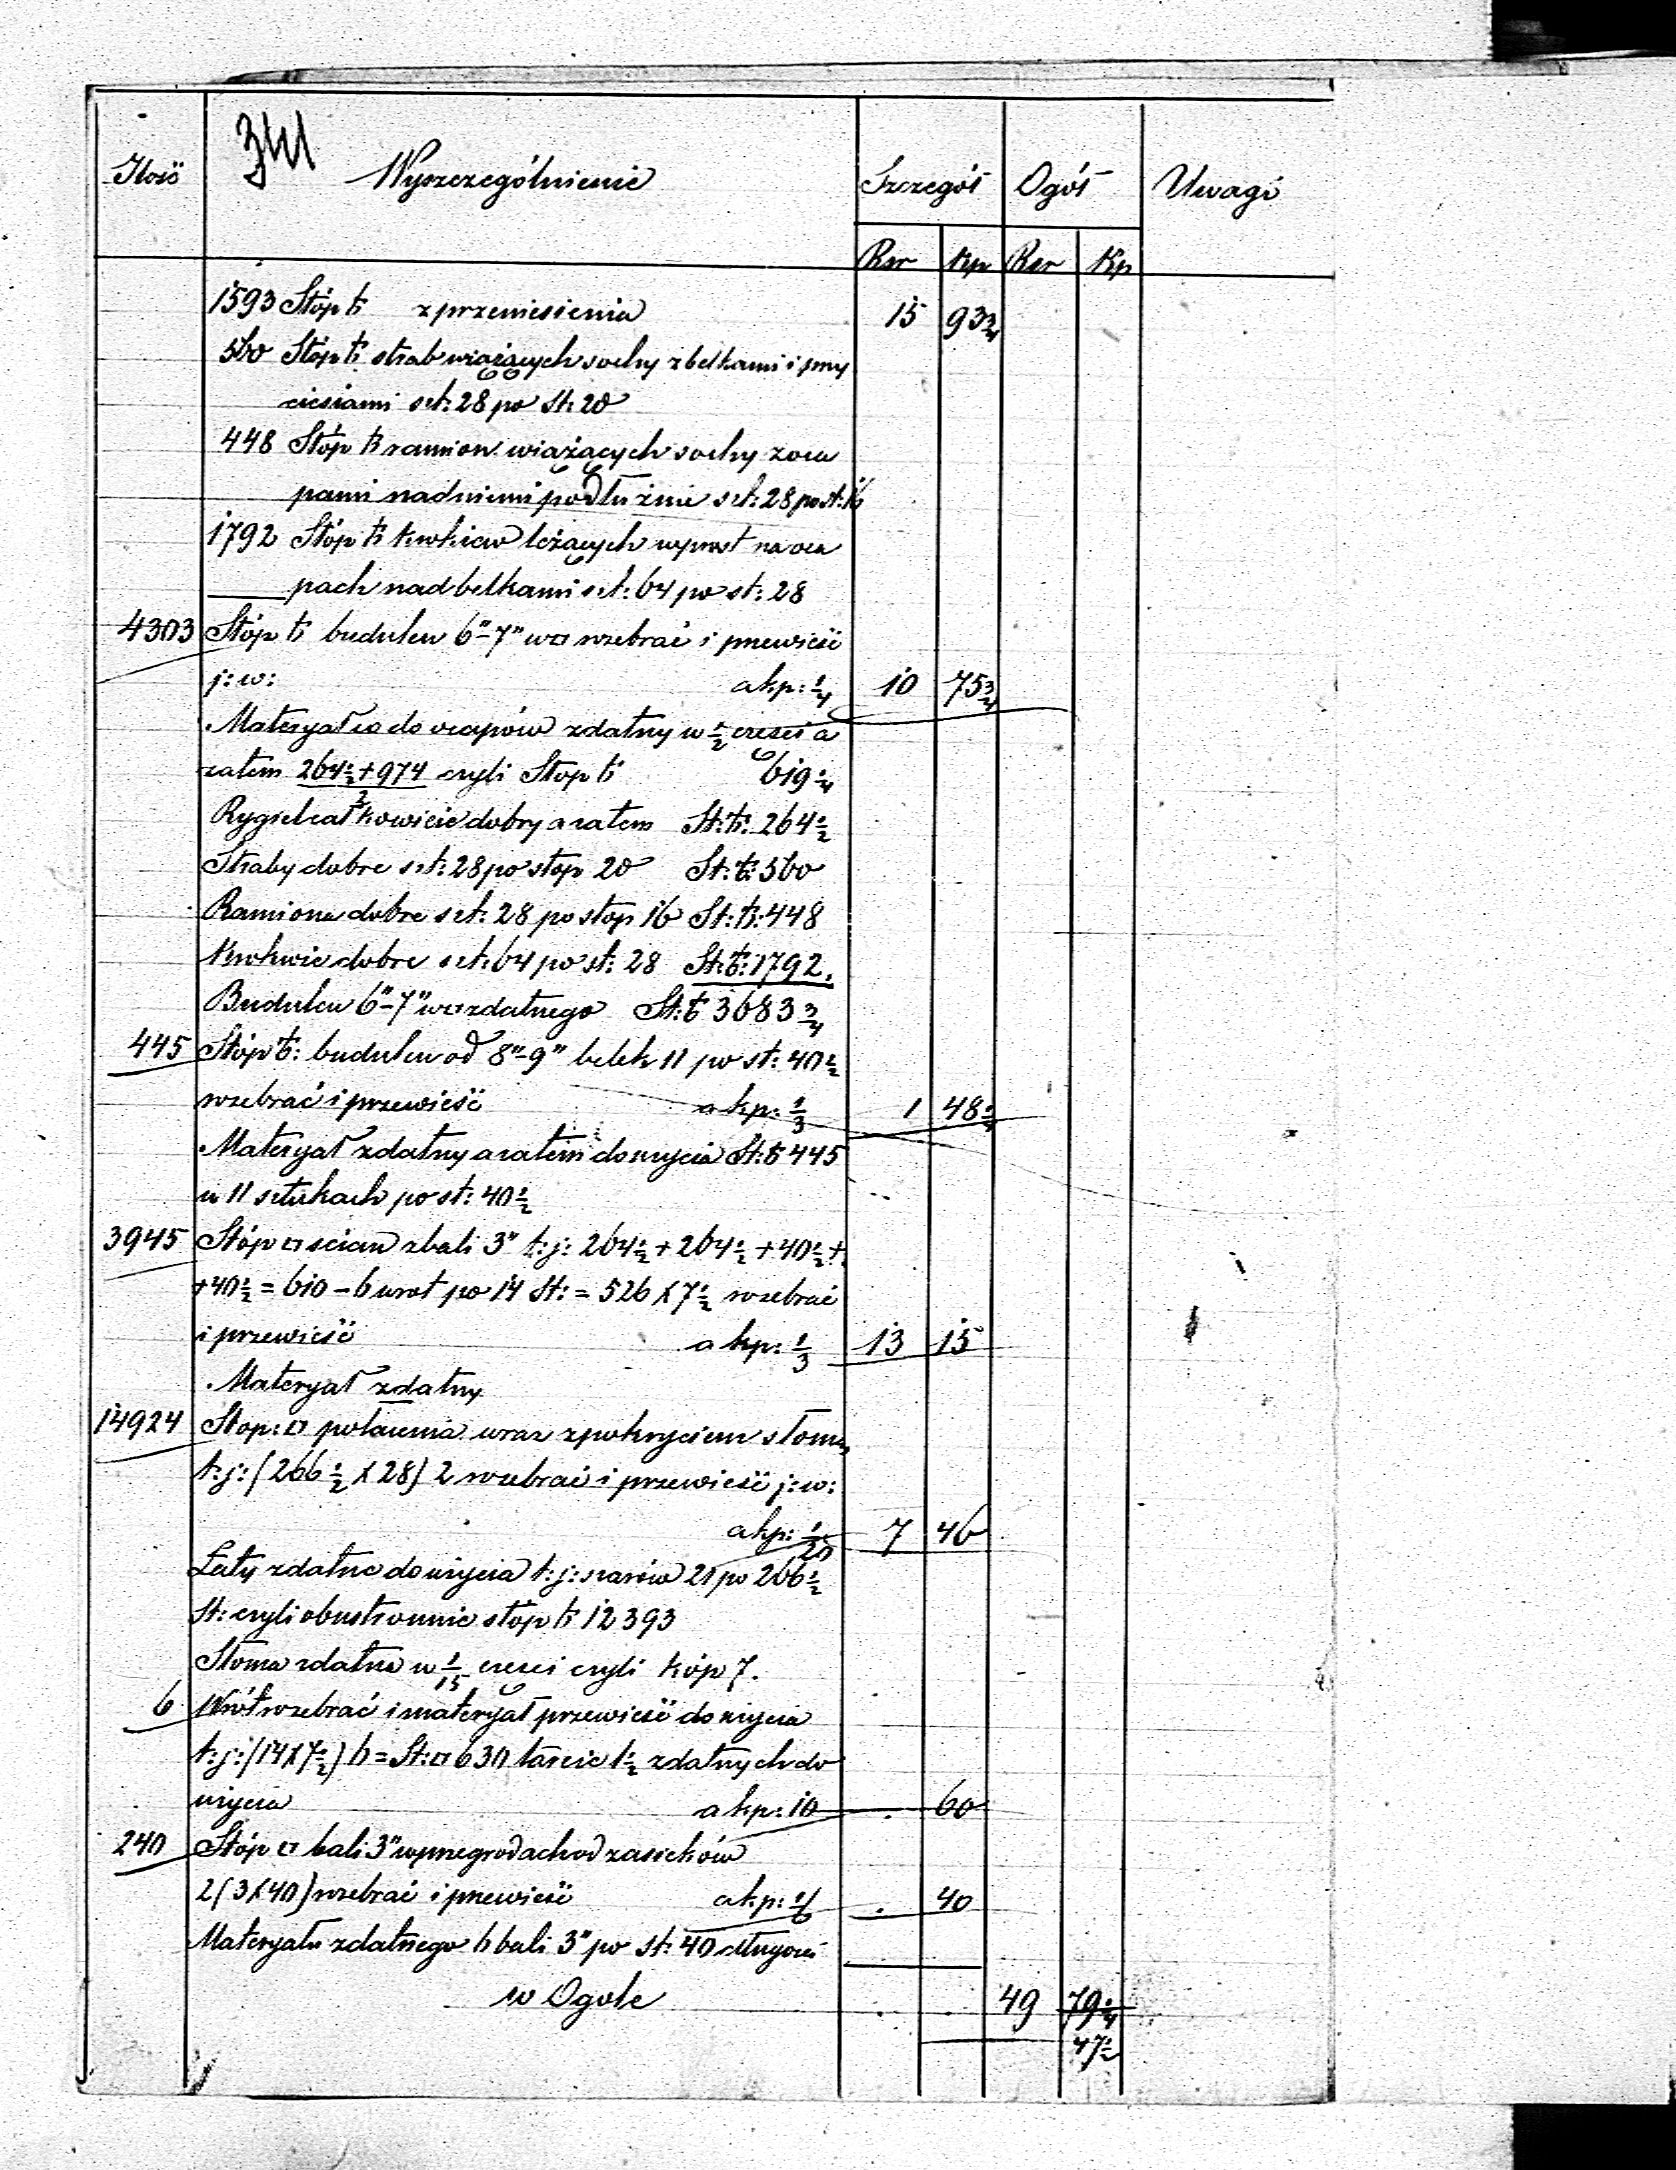 341
Ilość Wyszczególnienie Szczegół Ogół Uwagi
Rsr Kp Rsr Kp
1593 Stóp b z przeniesienia 15 93 3/4
560 Stóp b strab wiążących sochy z belkami i przy
ciesiami szt: 28 po st: 20
448 Stóp b ramion wiążących sochy z oca
pami nad niemi podłużnie szt: 28 po st: 16
1792 Stóp b krokiew leżących wprost na oca
pach nad belkami szt: 64 po st: 28
4303 Stóp b budulcu 6"-7" w □ rozebrać i przewieść
j: w: a kp: 1/4 10 75 3/4
Materyał co do ocapów zdatny w 1/2 części a
zatem 264 1/2 + 974 / 2 czyli Stop b 619 1/4
Rygiel całkowicie dobry a zatem St: b: 264 1/2
Straby dobre szt: 28 po stop 20 St: b: 560
Ramiona dobre szt: 28 po stop 16 St: b: 448
Krokwie dobre szt: 64 po st: 28 St: b: 1792.
Budulcu 6"-7" w □ zdatnego St: b 3683 3/4
445 Stóp b: budulcu od 8"-9" belek 11 po st: 40 1/2
rozebrać i przewieść a kp: 1/3 1 48 1/4
Materyał zdatny a zatem do użycia St: b 445
w 11 sztukach po st: 40 1/2
3945 Stóp □ ścian z bali 3" t: j: 264 1/2 + 264 1/2 + 40 1/2 +
+ 40 1/2 = 610 - 6 wrot po 14 St: = 526 X 7 1/2 rozebrać
i przewieść a kp: 1/3 13 15
Materyał zdatny
14924 Stop: □ połacenia wraz z pokryciem słomą
t: j: (266 1/2 X 28) 2 rozebrać i przewieść j: w:
a kp: 1/20 7 46
Łaty zdatne do użycia t: j: szarów 21 po 266 1/2
St: czyli obustronnie stóp b 12393
Słoma zdatna w 1/15 części czyli kóp 7.
6 Wrót rozebrać i materyał przewieść do użycia
t: j: (14 X 7 1/2) 6 = St: □ 630 tarcic 1 1/2 zdatnych do
użycia a kp: 10 . 60
240 Stóp □ bali 3" w przegrodach od zasieków
2 (3 X 40) rozebrać i przewieść a kp: 1/6 . 40
Materyału zdatnego 6 bali 3" po st: 40 długości
w Ogole . . 49 79 1/4
47 1/2